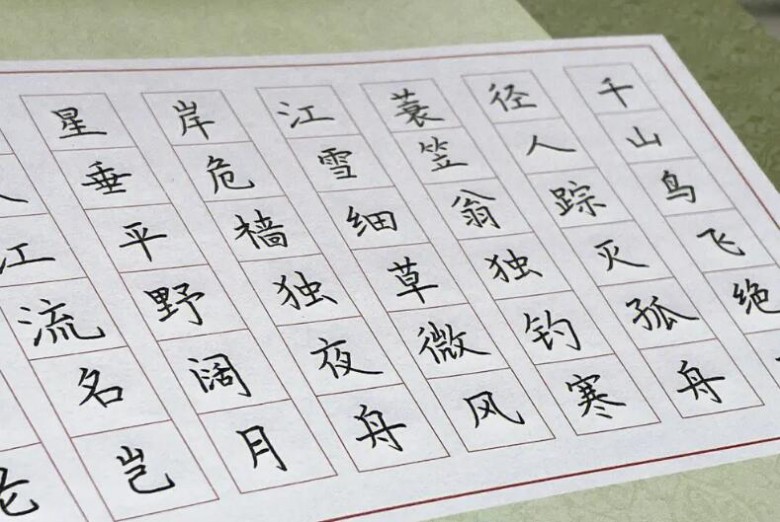 千山鸟飞绝
径人踪灭孤舟
蓑笠翁独钓寒
江雪细草微风
岸危樯独夜舟
星垂平野阔月
江流名岂